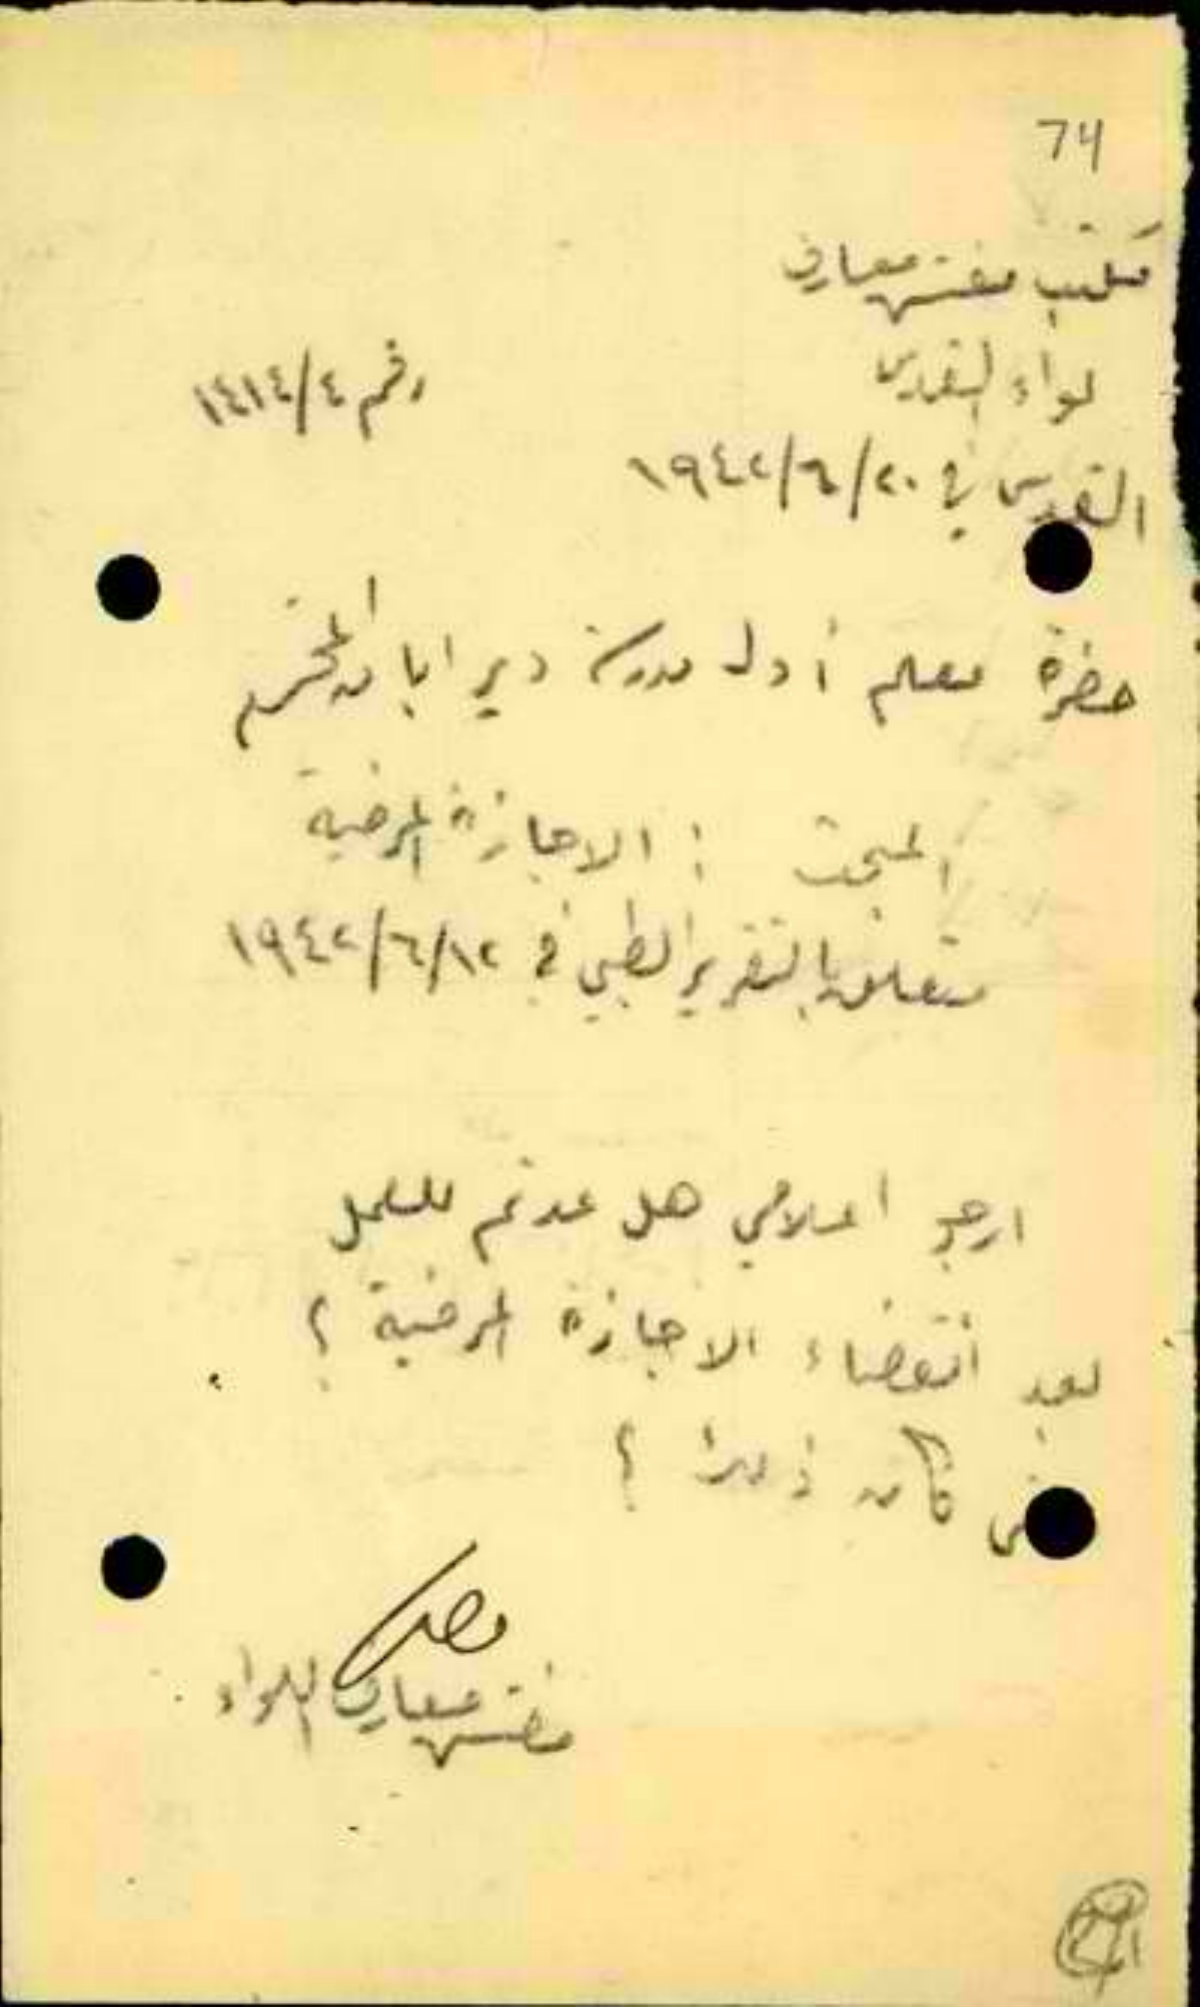 74
مكتب مفتش معارف
لواء القدس
رقم ١٤١٤/٤
القدس في ٢٠/٦/١٩٤٢
حضرة معلم أول مدرسة دير ابان المحترم
المبحث : الاجازة المرضية
متعلق بالتقرير الطبي في ١٢/٦/١٩٤٢
ارجو اعلامي هل عدتم للعمل
بعد انقضاء الاجازة المرضية ؟
كان ذلك ؟
مفتش معارف اللواء